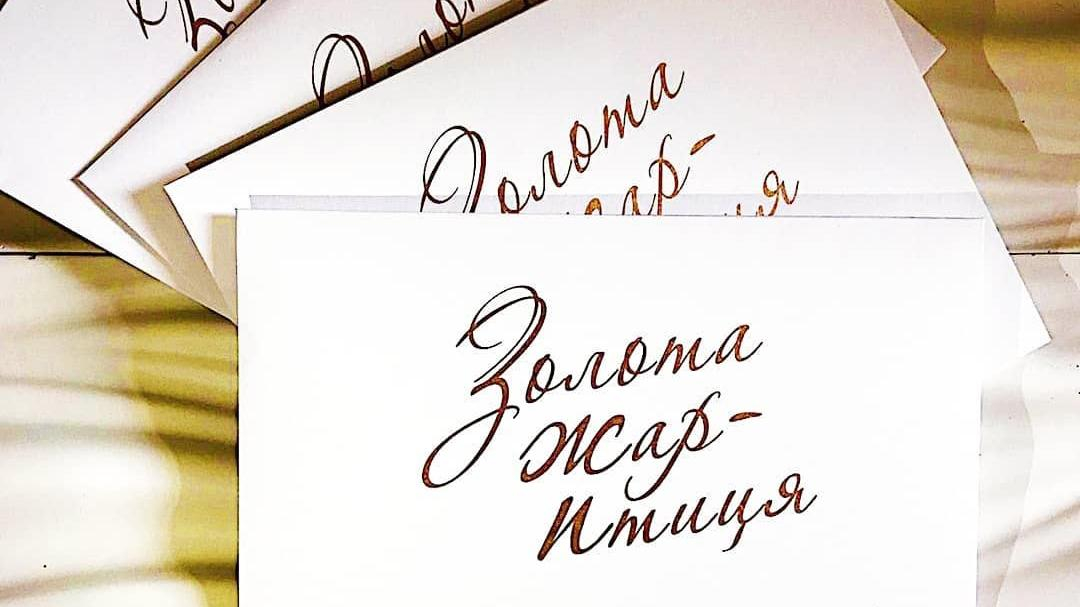 Золота
жар-
Золота
Жар-
птиця